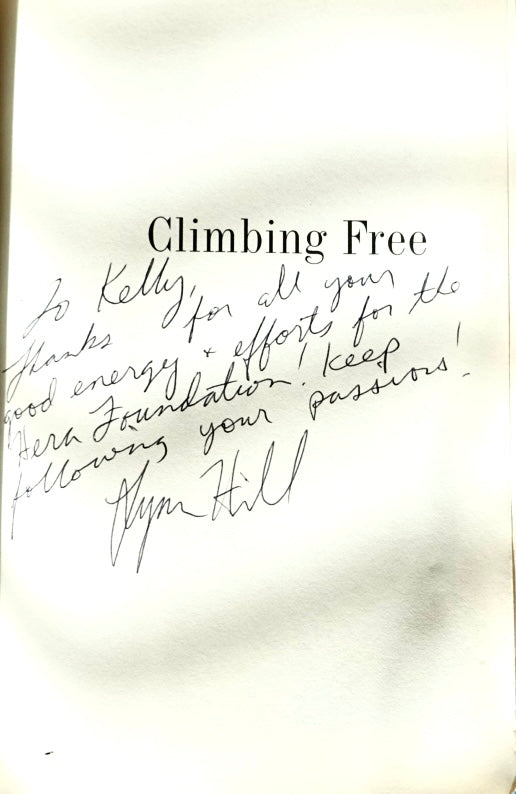 Climbing Free
To Kelly,
Thanks for all your
good energy + efforts for the
Hera Foundation! Keep
following your passions!
Lynn Hill